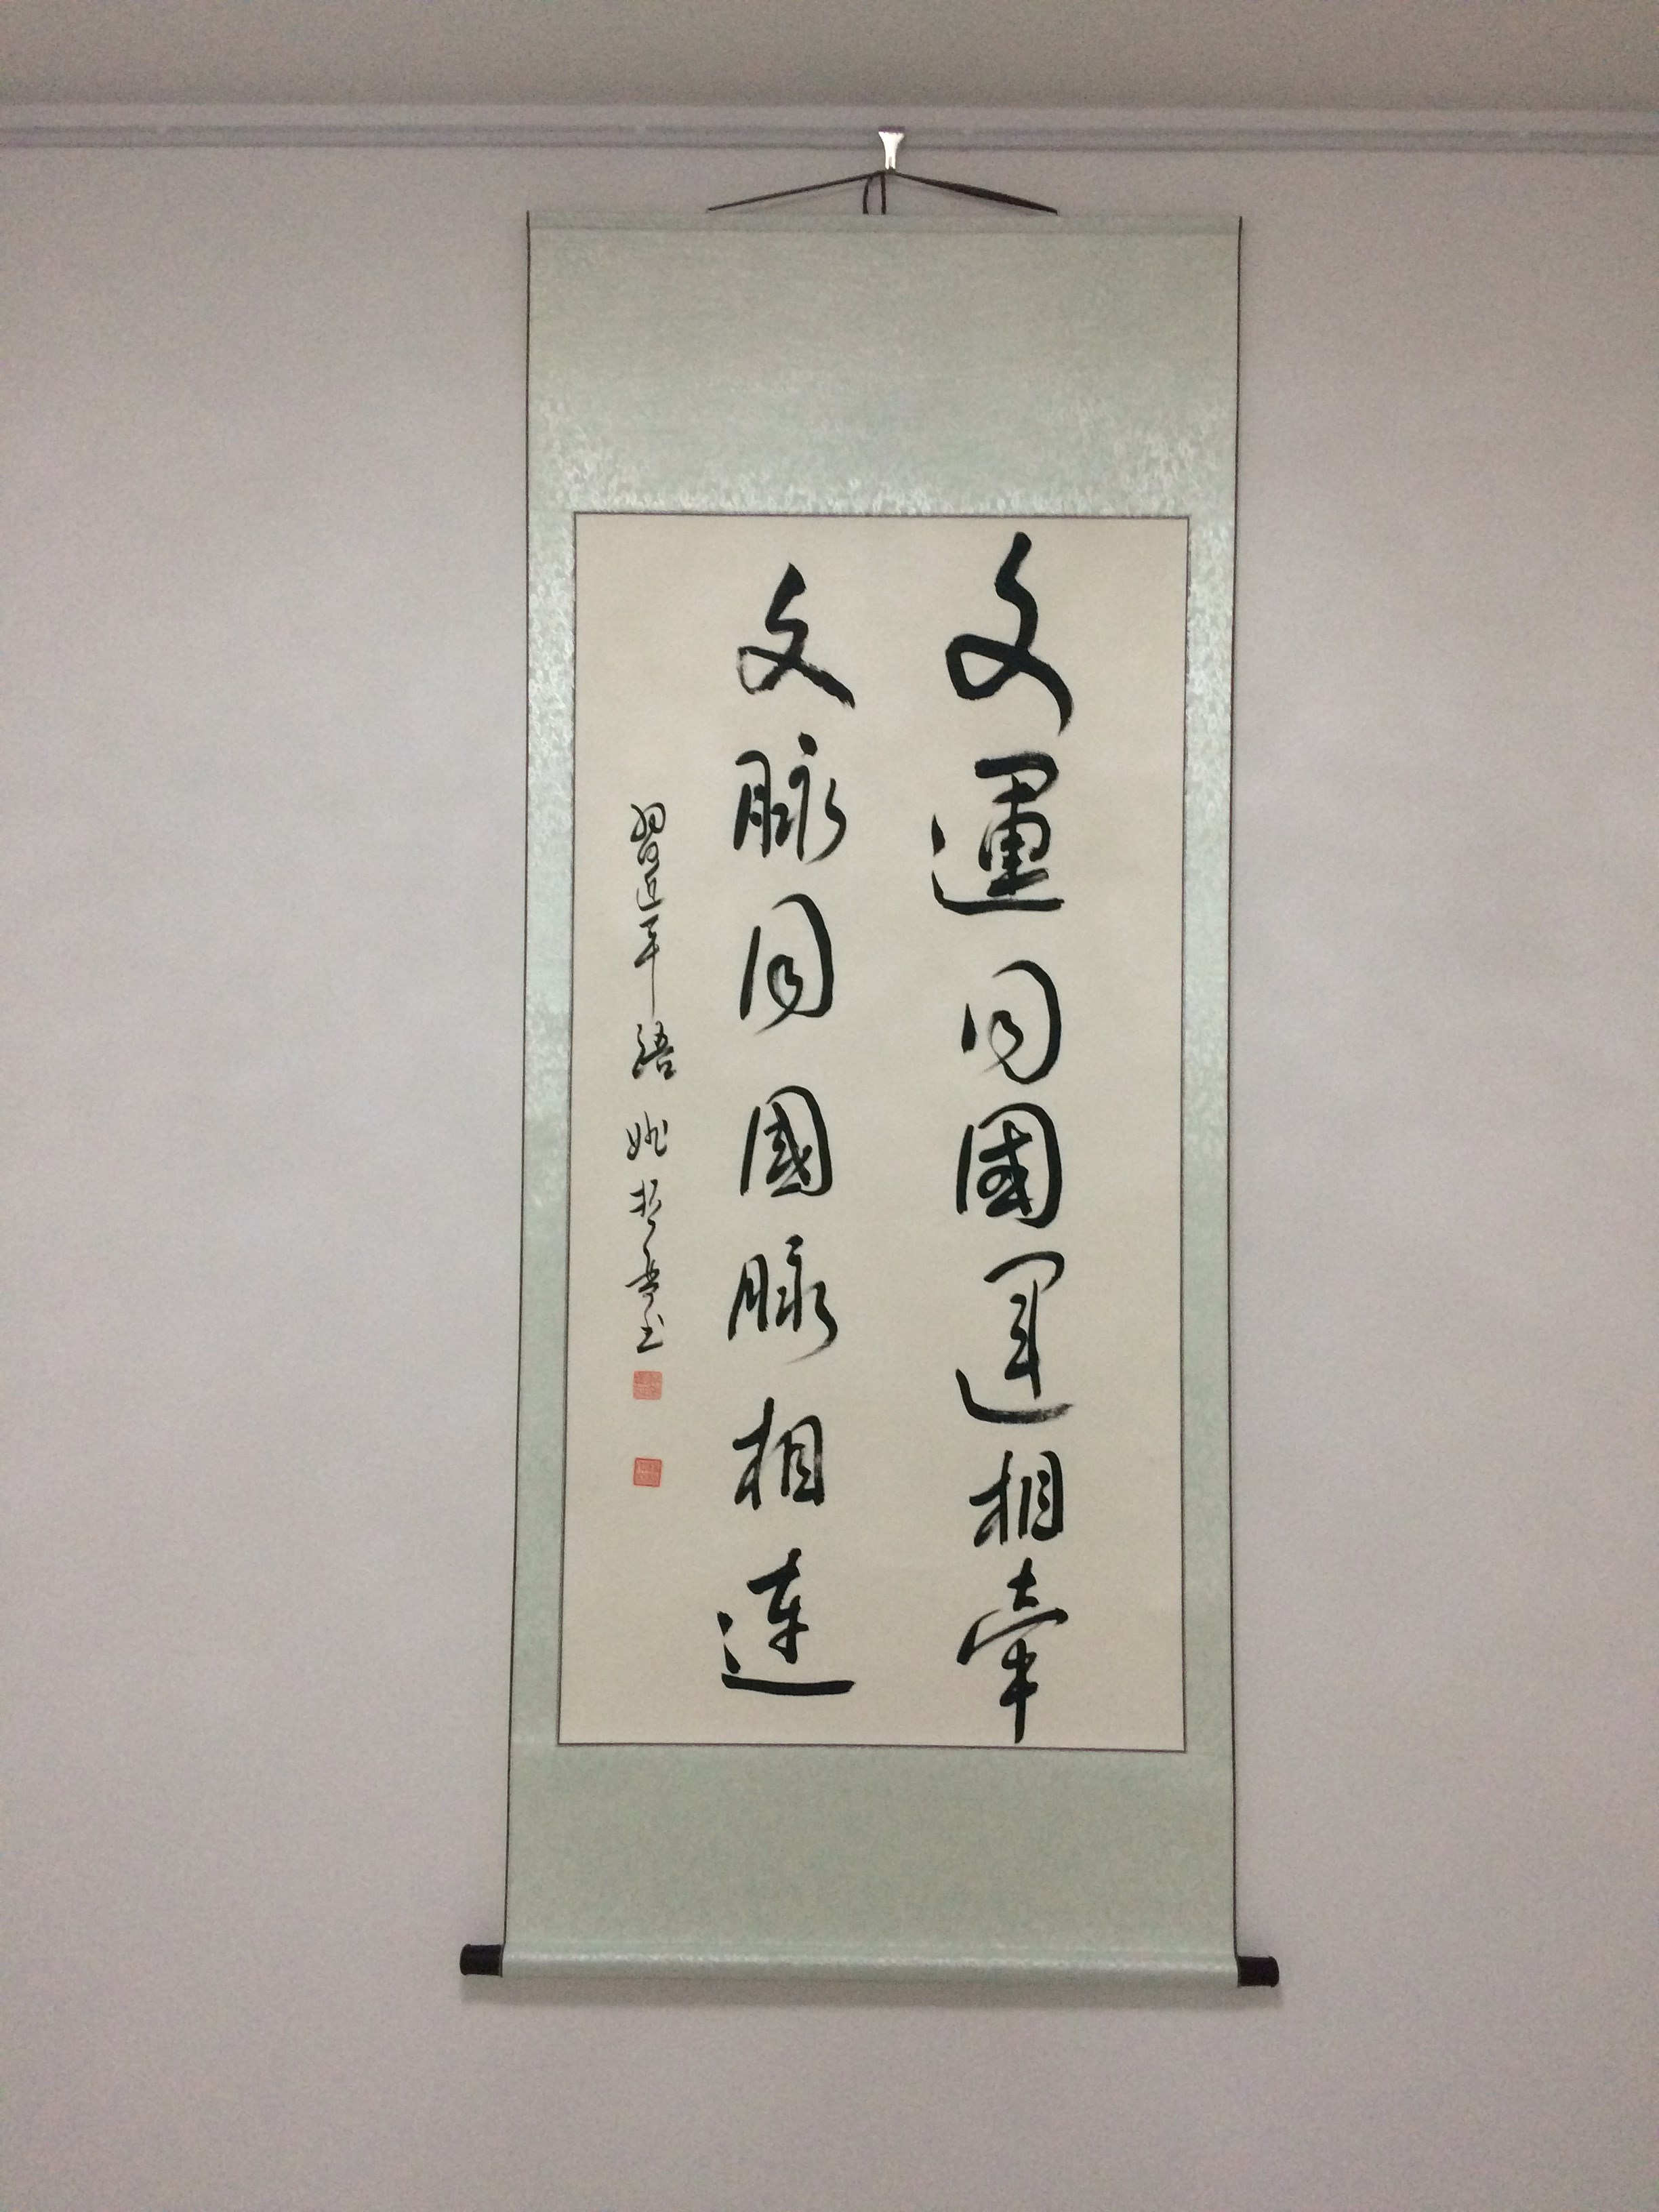 文運同國運相牽
文脈同國脈相連
習近平語 姚哲音书